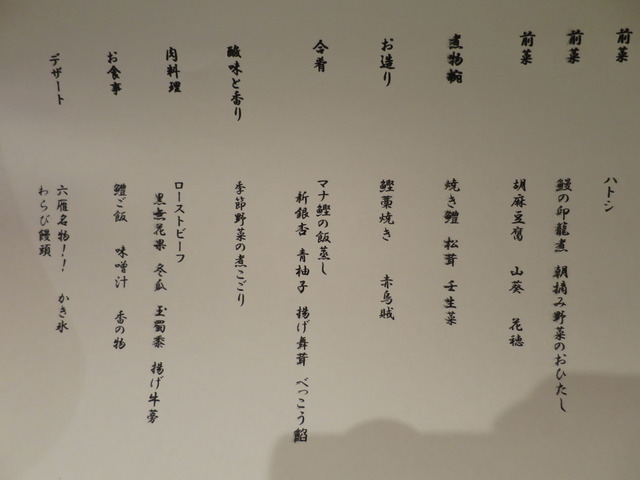 前菜 ハトシ
前菜 鰻の印籠煮 朝摘み野菜のおひたし
前菜 胡麻豆腐 山葵 花穂
煮物椀 焼き鱧 松茸 壬生菜
お造り 鰹藁焼き 赤烏賊
合肴 マナ鰹の飯蒸し
新銀杏 青柚子 揚げ舞茸 べっこう餡
酸味と香り 季節野菜の煮こごり
肉料理 ローストビーフ
黒無花果 冬瓜 玉蜀黍 揚げ牛蒡
お食事 鱧ご飯 味噌汁 香の物
デザート 六雁名物!! かき氷
わらび饅頭